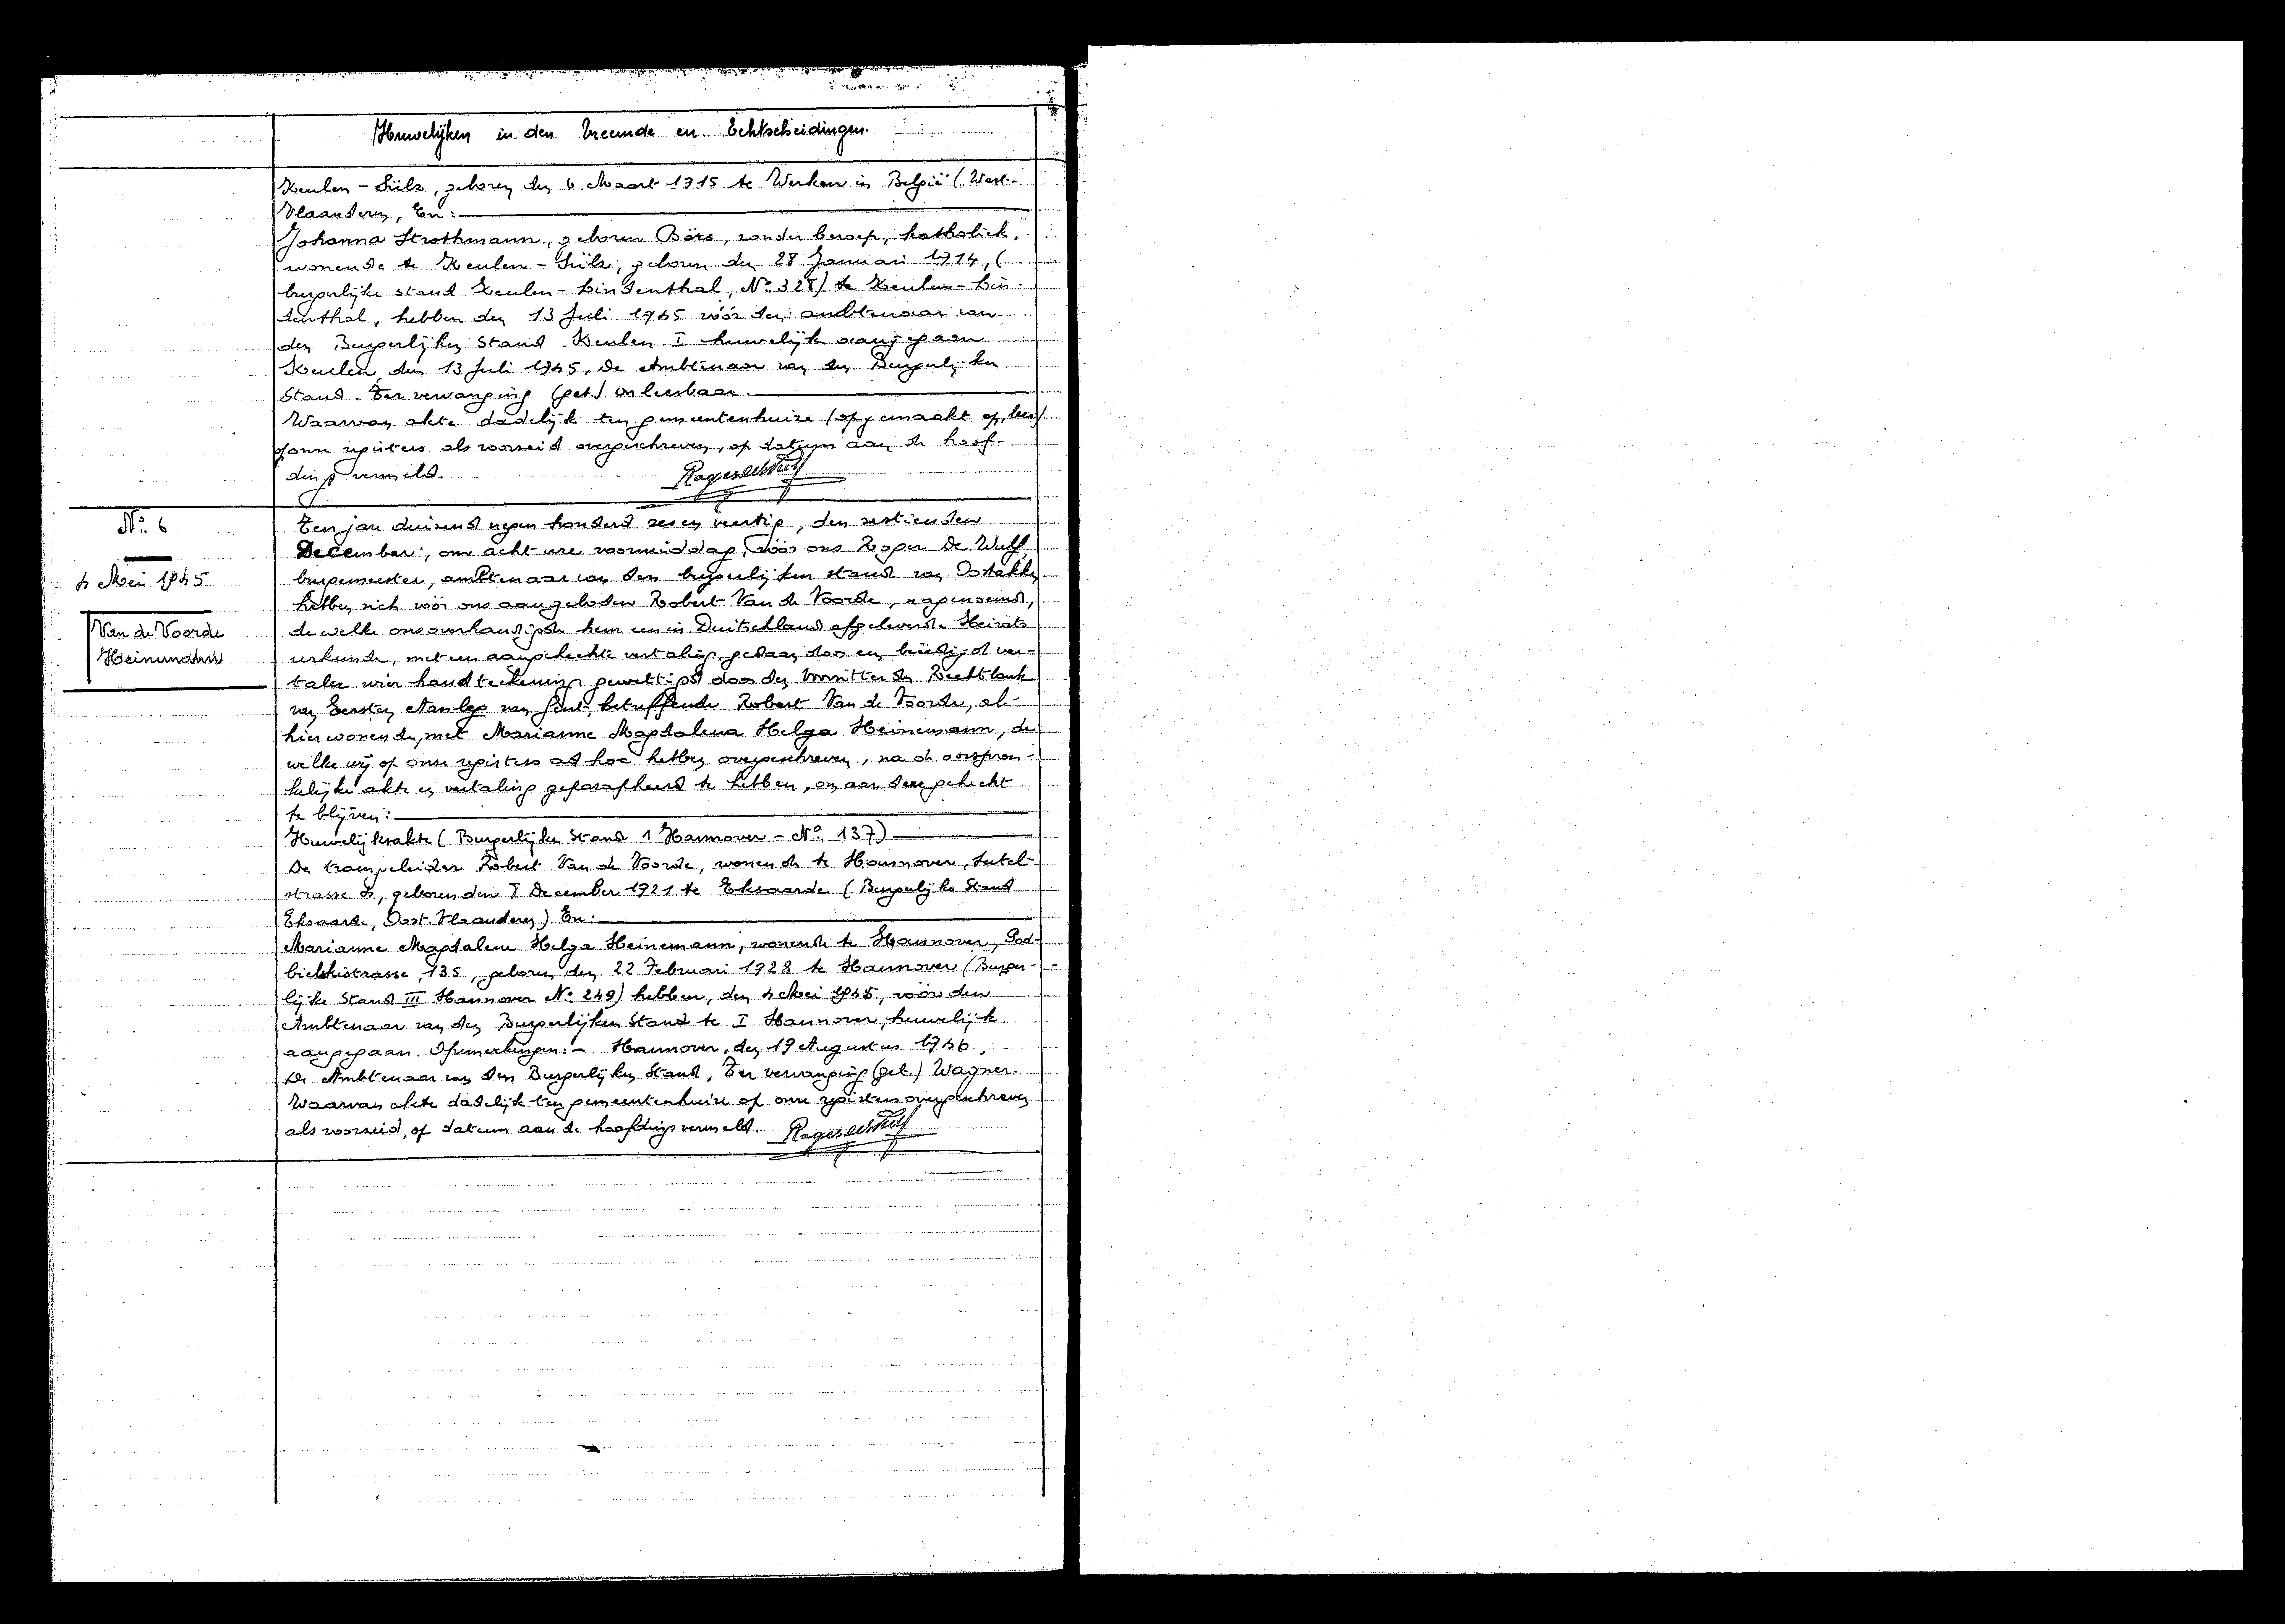 Huwelijken in den Vreemde en Echtscheidingen.
Keulen - Sülz, geboren den 6 Maart 1915 te Werken in België (West-
Vlaanderen, En:
Johanna Strothmann, geboren Börs, zonder beroep, katholiek,
wonende te Keulen - Sülz, geboren den 28 Januari 1914, (
burgerlijke stand Keulen - Lindenthal, No 328) te Keulen - Lin-
denthal, hebben den 13 Juli 1945 vóór den ambtenaar van
den Burgerlijken Stand Keulen I huwelijk aangegaan
Keulen, den 13 Juli 1945, De Ambtenaar van den Burgerlijken
Stand. Ter vervanging (get.) onleesbaar.
Waarvan akte dadelijk ten gemeentenhuize (opgemaakt op, lees)
op onze registers als voorseid overgeschreven, op datum aan de hoof-
ding vermeld. Roger De Wulf
No. 6
4 Mei 1945
Van de Voorde
Heinemann
Een jaar duizend negen honderd zes en veertig, den zestienden
December, om acht ure voormiddag, vóór ons Roger De Wulf,
burgemeester, ambtenaar van den burgerlijken stand van Oostakker
hebben zich vóór ons aangeboden Robert Van de Voorde, nagenoemd,
dewelke ons overhandigde hem een in Duitschland afgeleverde Heirats
urkunde, met een aangehechte vertaling, gedaan door een beëdigd ver-
taler wier handteekening gewettigd door den Voorzitter der Rechtbank
van Eersten Aanleg van Gent, betreffende Robert Van de Voorde, al-
hier wonende, met Marianne Magdalena Helga Heinemann, de
welke wij op onze registers ad hoc hebben overgeschreven, na de oorspron-
kelijke akte en vertaling geparafheerd te hebben, om aan deze gehecht
te blijven:
Huwelijksakte (Burgerlijke Stand 1 Hannover - No. 137)
De tramgeleider Robert Van de Voorde, wonende te Hannover,
strasse 4, geboren den December 1921 te Eksaarde (Burgerlijke Stand
Eksaarde, Oost-Vlaanderen) En:
Marianne Magdalene Helga Heinemann, wonende te Hannover, Pod-
bielskistrasse, 135, geboren den 22 Februari 1928 te Hannover (Burger-
lijke Stand III Hannover No. 249) hebben, den 4 Mei 1945, vóór den
Ambtenaar van den Burgerlijken Stand te I Hannover, huwelijk
aangegaan. Opmerkingen: - Hannover, den 19 Augustus 1946,
De Ambtenaar van den Burgerlijken Stand, Ter vervanging (get.) Wagner.
Waarvan akte dadelijk ten gemeentenhuize op onze registers overgeschreven
als voorseid, op datum aan de hoofding vermeld. Roger De Wulf